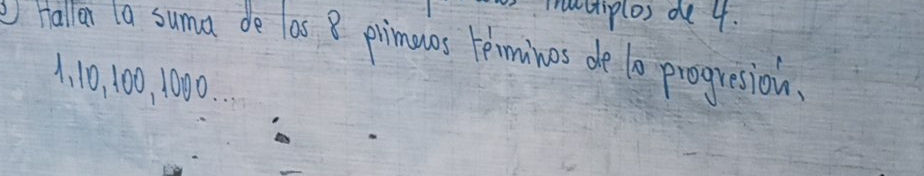 múltiplos de 4.
③ Hallar la suma de los 8 primeros términos de la progresión,
1,10,100,1000...